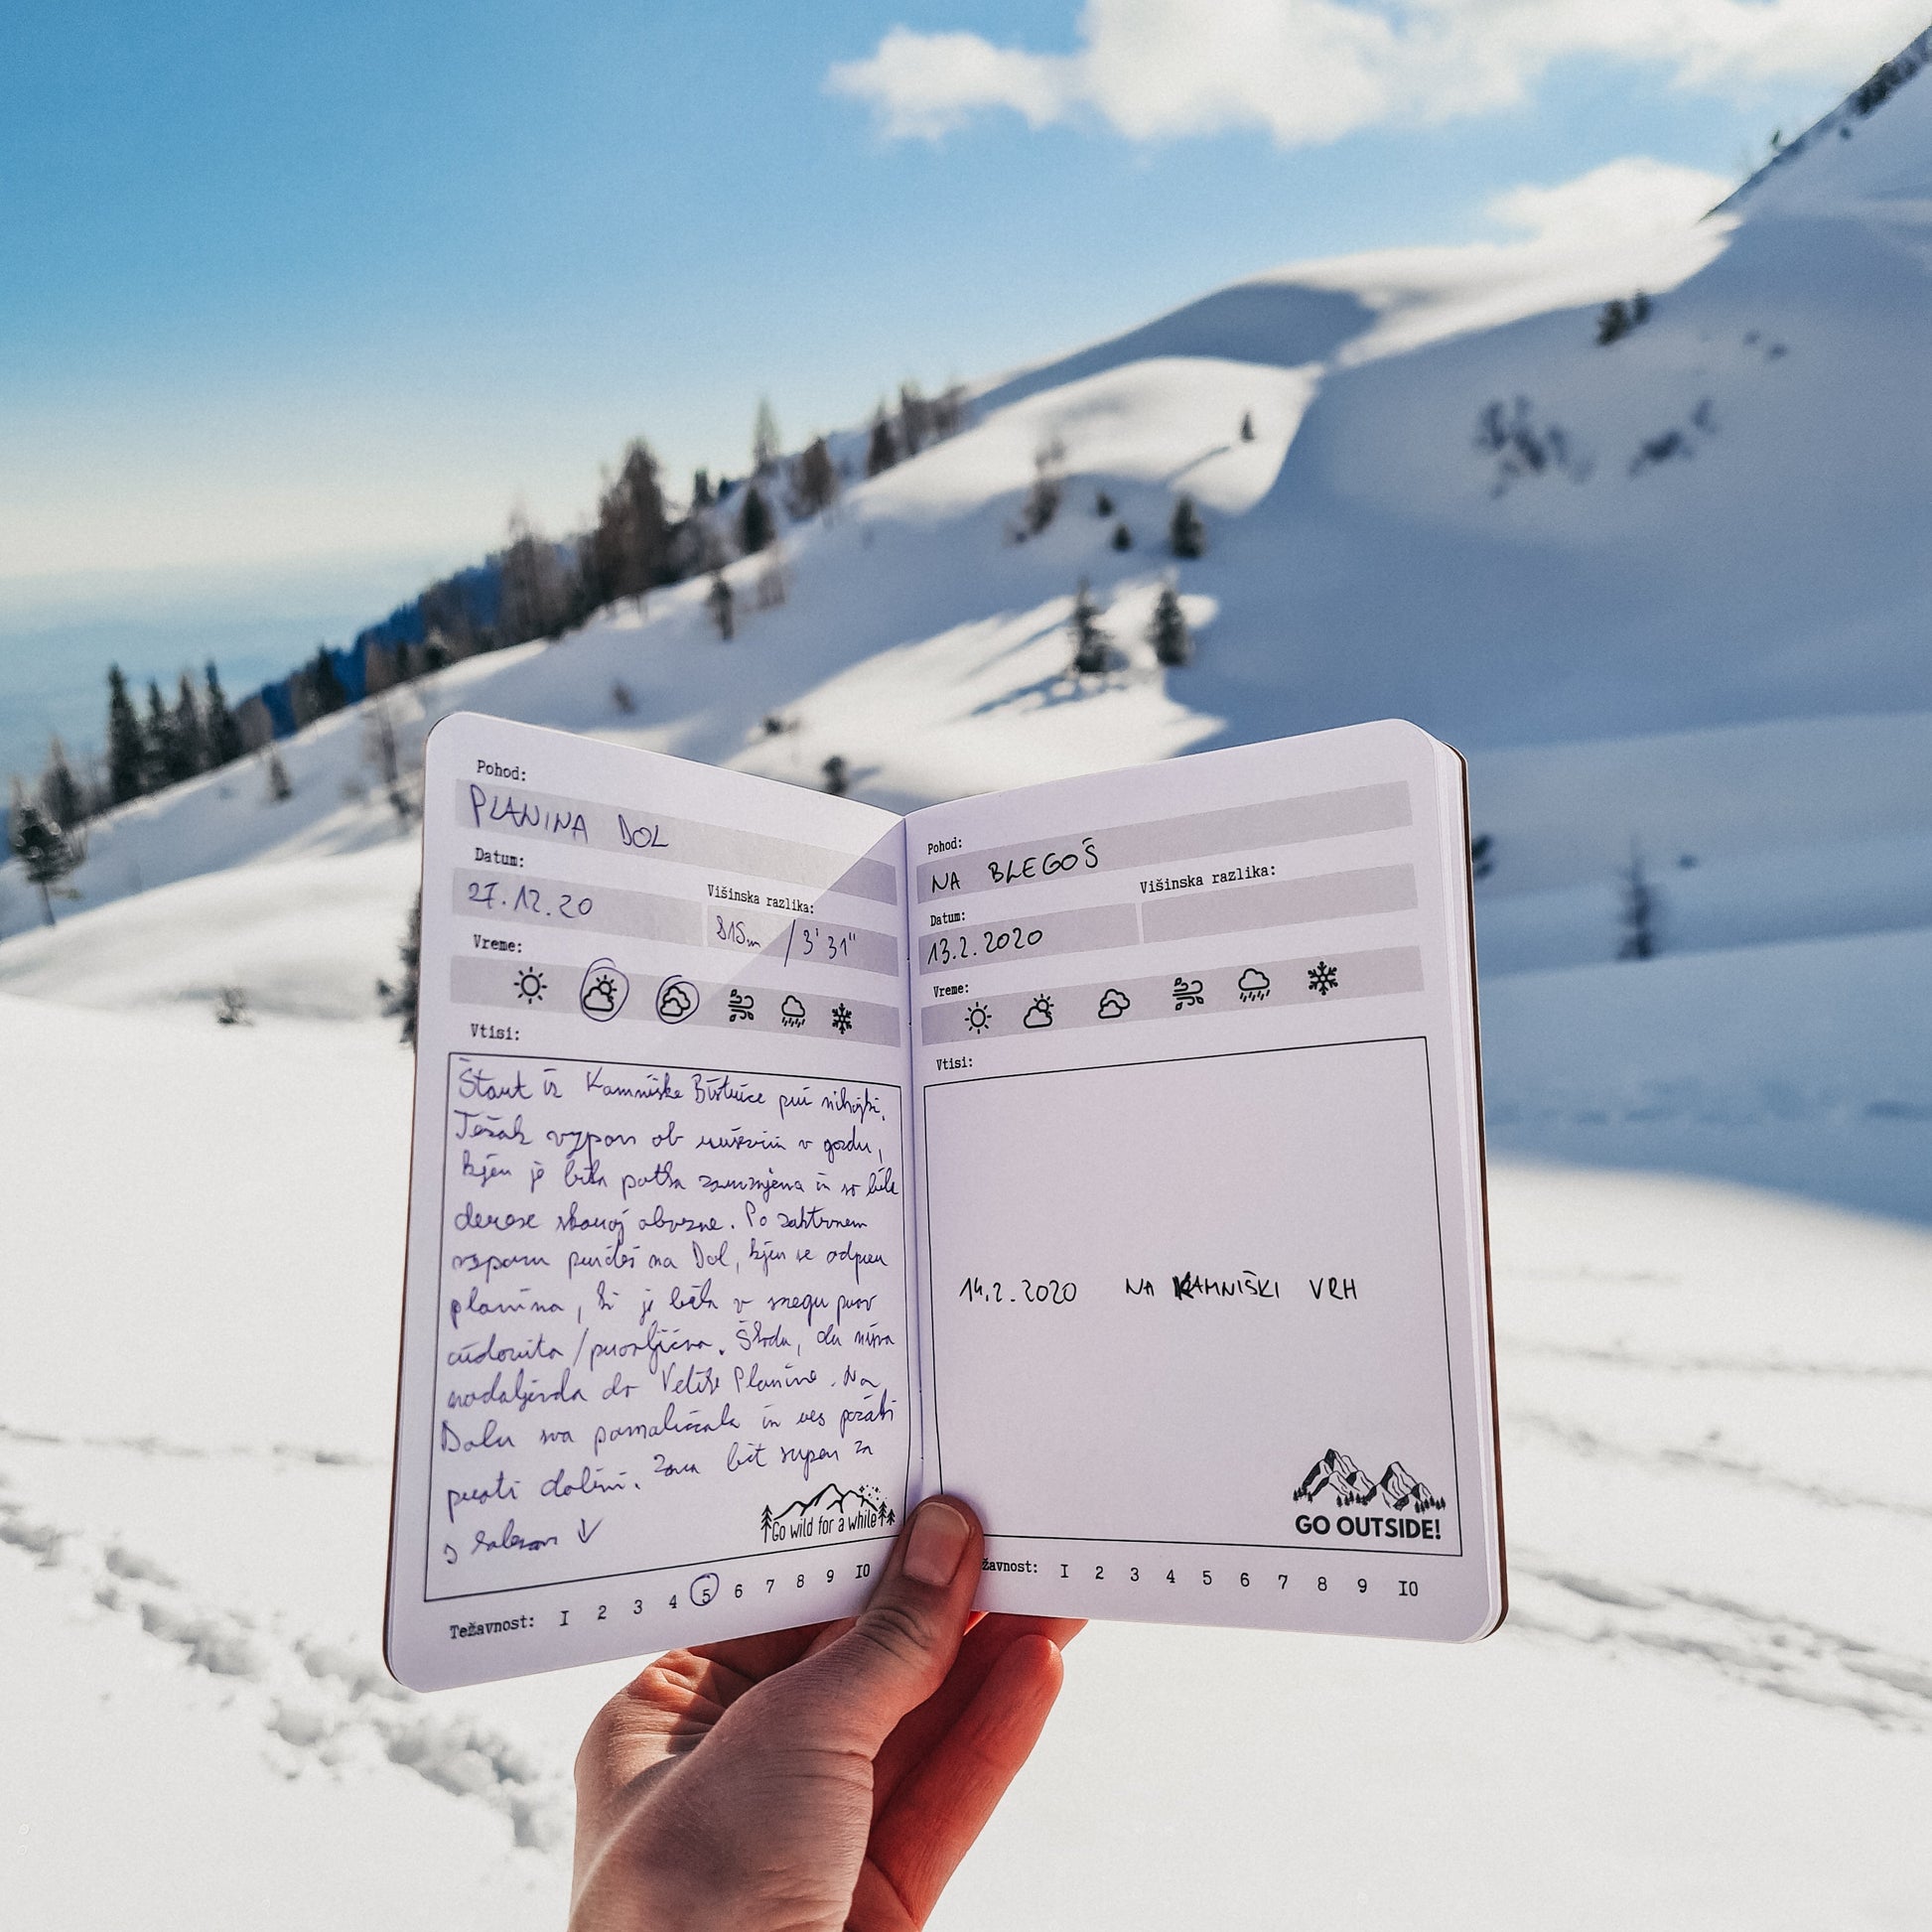 Pohod:
PLANINA DOL
Datum:
27.12.20
Višinska razlika:
815m / 3' 31"
Vreme:
Vtisi:
Štart iz Kamniške Bistrice pri
Težak vzpon ob v gozdu,
kjer je bila potka zamrznjena in so bile
dereze skoraj obvezne. Po zahtevnem
vzponu prideš na Dol, kjer se odpre
planina, ki je bila v snegu prav
čudovita / pravljična. Škoda, da nisva
nadaljevala do Velike Planine. Na
Dolu sva pomalicala in ves počasi
proti dolini. Zna bit super za
s
Go wild for a while
Težavnost: 1 2 3 4 5 6 7 8 9 10
Pohod:
NA BLEGOŠ
Datum:
13.2.2020
Višinska razlika:
Vreme:
Vtisi:
14.2.2020 NA KAMNIŠKI VRH
GO OUTSIDE!
žavnost: 1 2 3 4 5 6 7 8 9 10